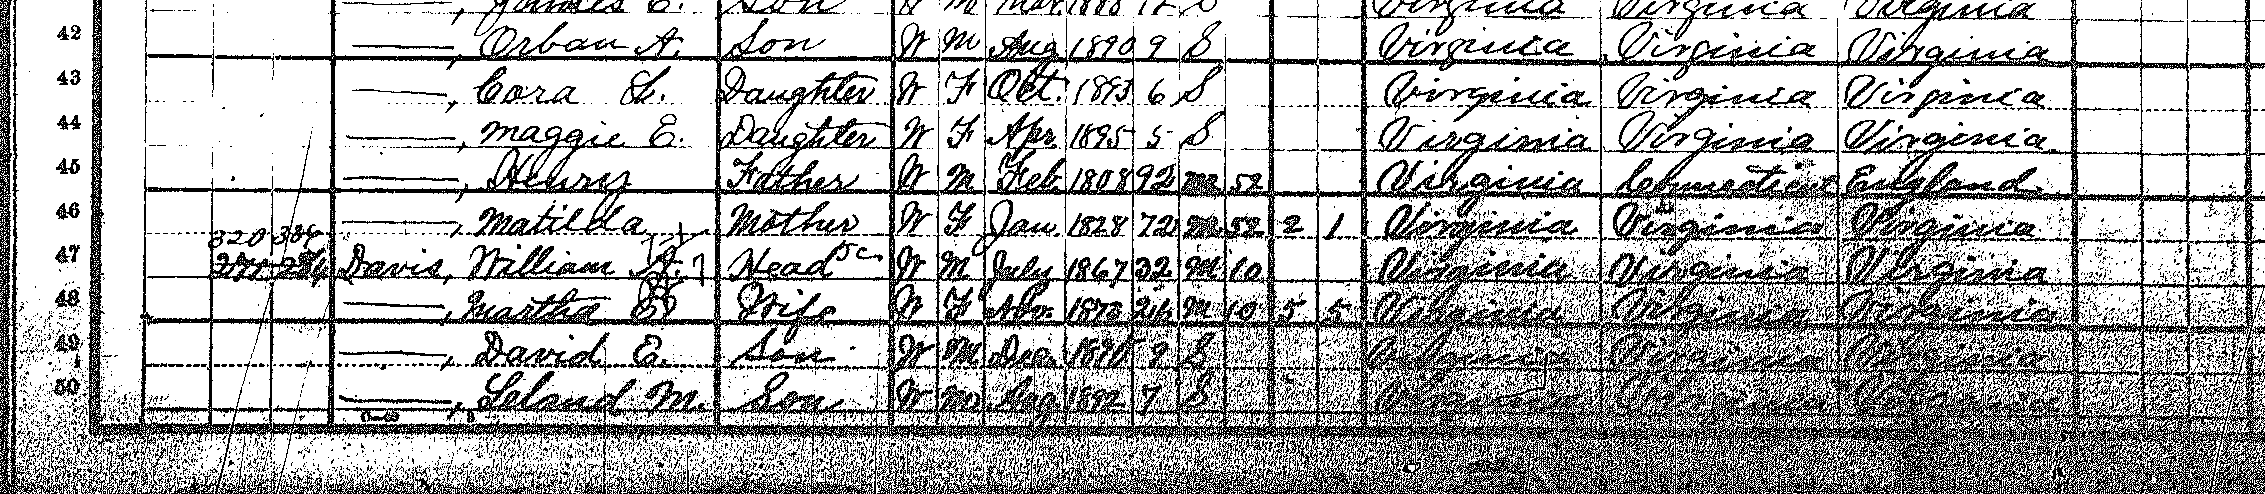 James E. Son W M Mar. 18 12 S Virginia Virginia Virginia
42 ——, Orban A. Son W M Aug 1890 9 S Virginia Virginia Virginia
43 ——, Cora L. Daughter W F Oct. 1893 6 S Virginia Virginia Virginia
44 ——, Maggie E. Daughter W F Apr. 1895 5 S Virginia Virginia Virginia
45 ——, Henry Father W M Feb 1808 92 M 52 Virginia Connecticut England
46 ——, Matilda Mother W F Jan 1828 72 M 52 2 1 Virginia Virginia Virginia
320
47 Davis, William Head W M July 1867 32 M 10 Virginia Virginia Virginia
48 ——, Martha E. Wife W F Nov. 1873 26 M 10 5 5 Virginia Virginia Virginia
49 ——, David E. Son W M Dec. 1890 9 S Virginia Virginia Virginia
50 ——, Leland M. Son W M Aug 1892 7 S Virginia Virginia Virginia